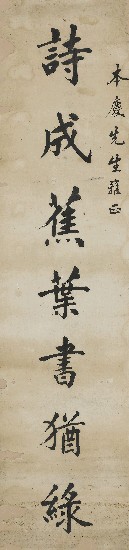 本慶先生雅正
詩成蕉葉書猶綠